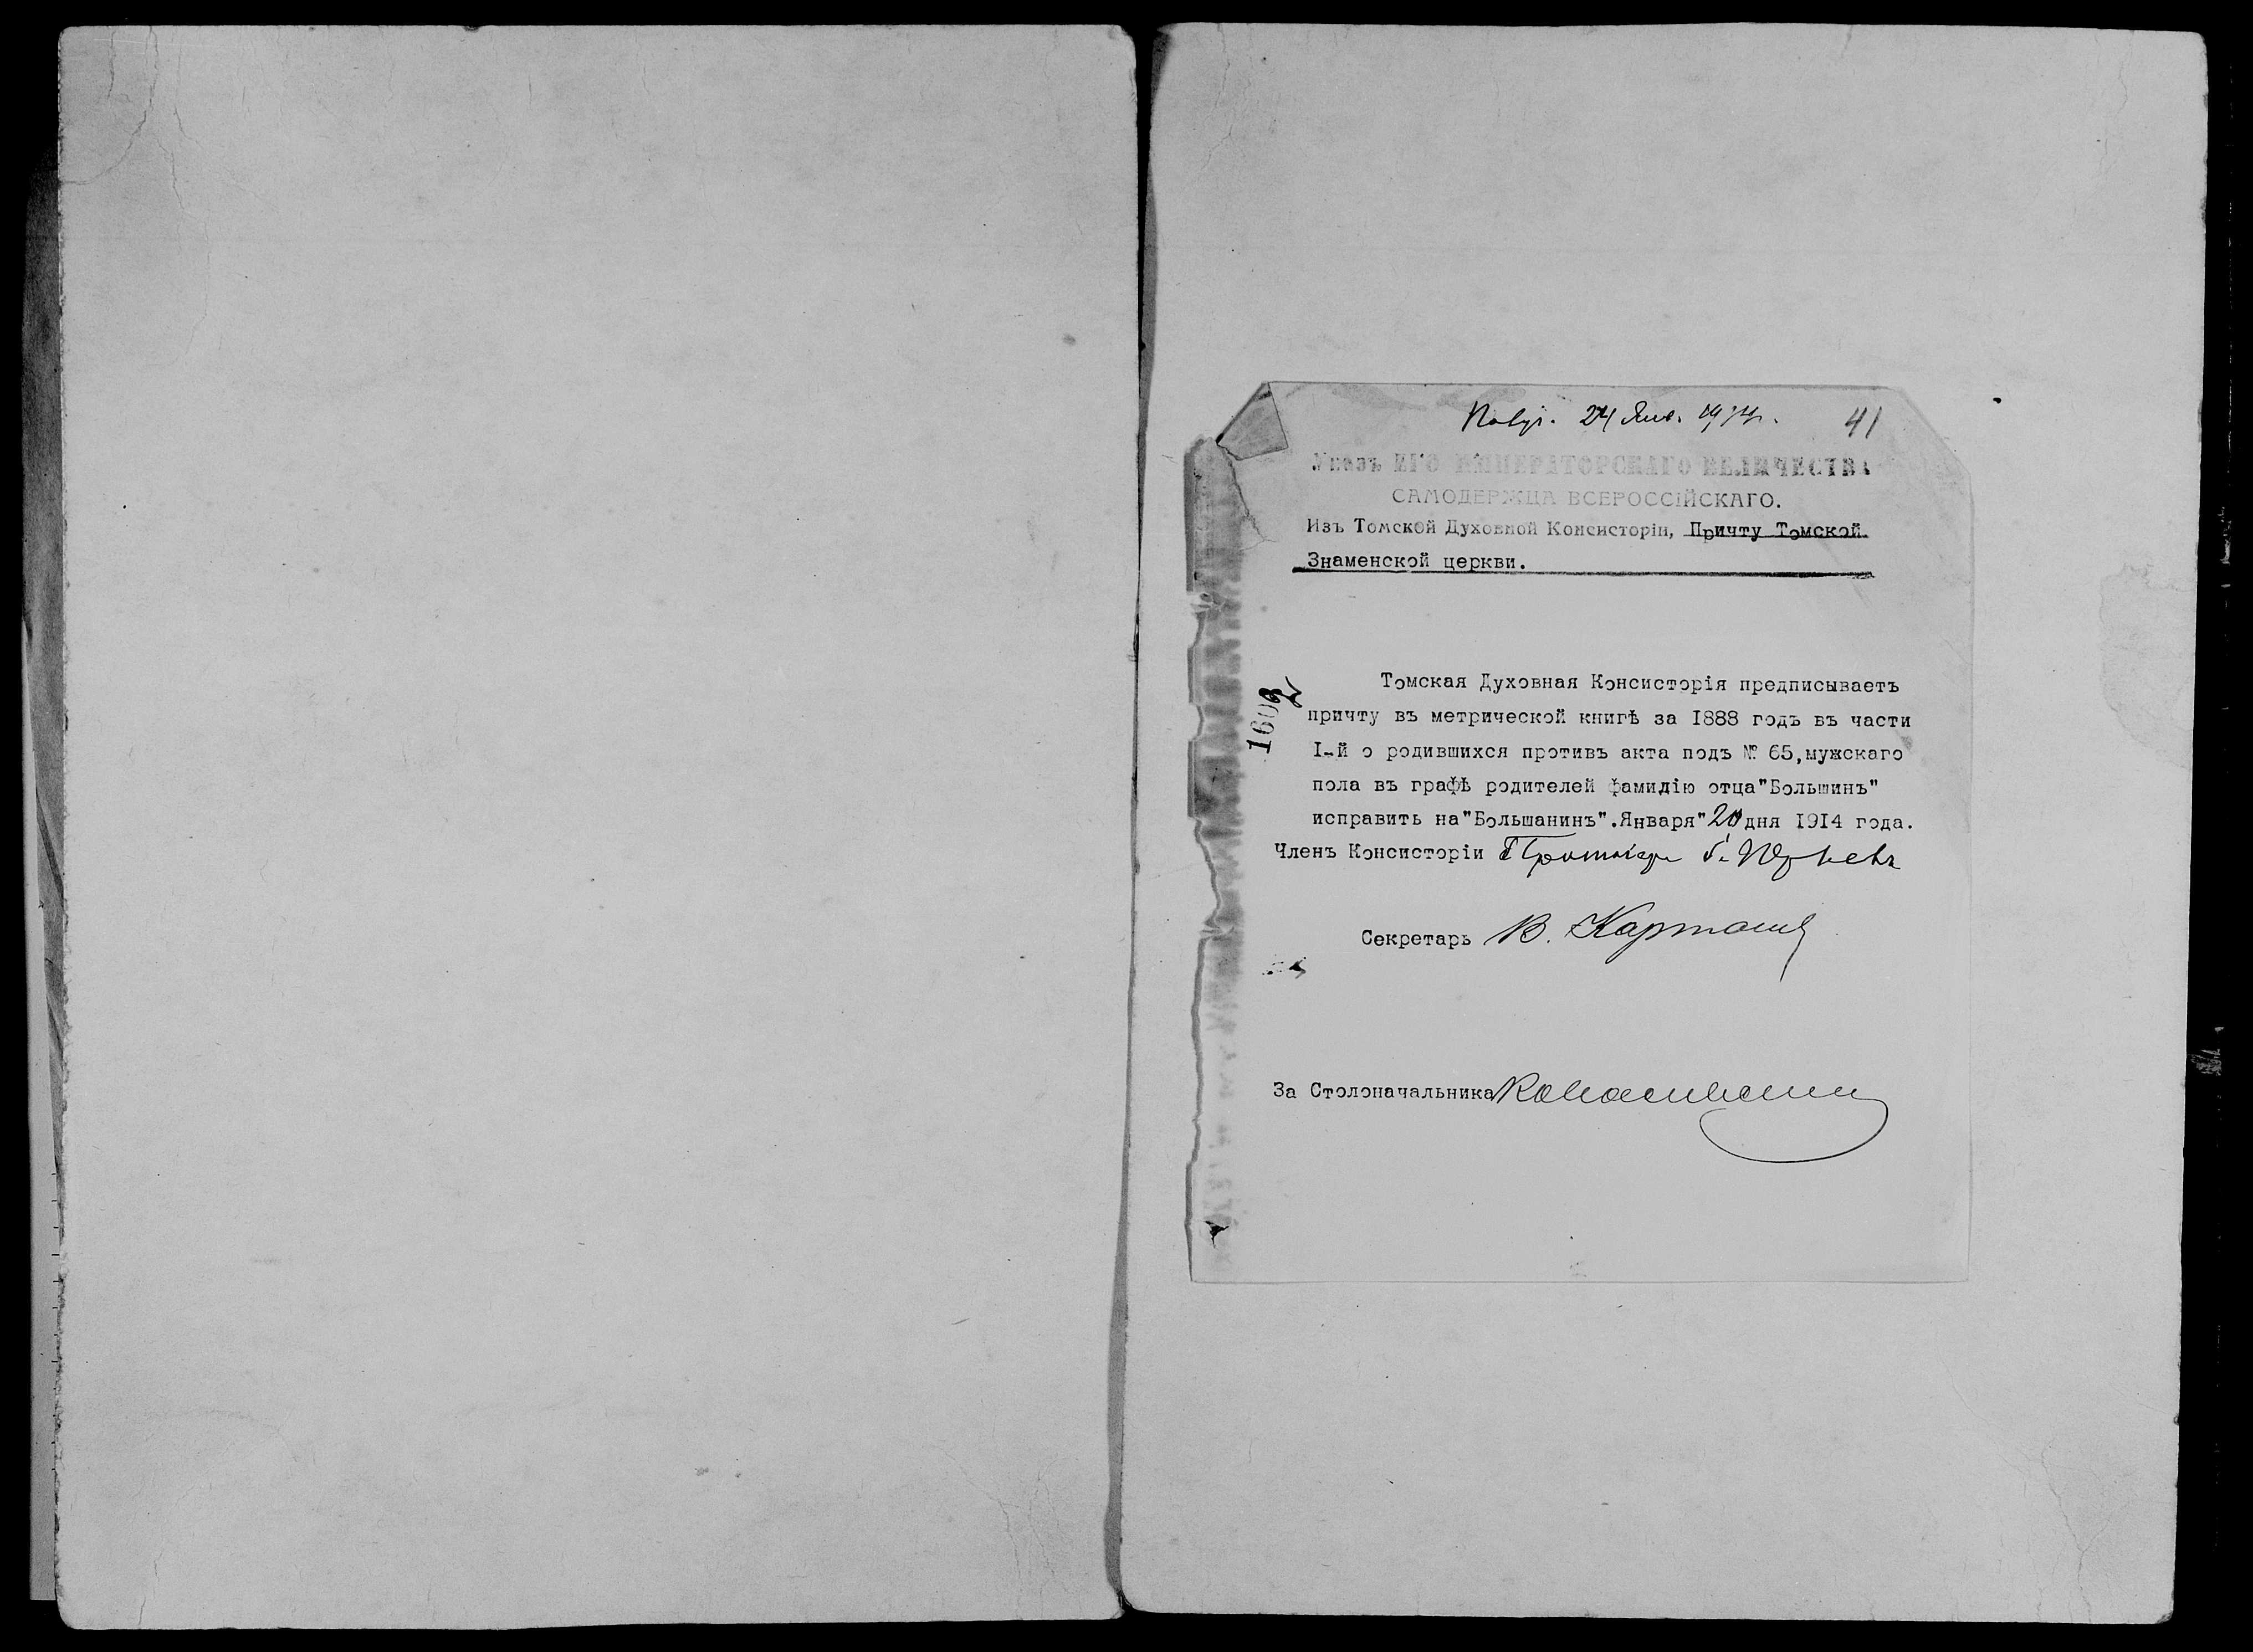 Получ. 24 Янв. 1914 г. 41
Указъ ЕГО ИМПЕРАТОРСКАГО ВЕЛИЧЕСТВА
САМОДЕРЖЦА ВСЕРОССІЙСКАГО.
Изъ Томской Духовной Консисторіи, Причту Томской
Знаменской церкви.
Томская Духовная Консисторія предписываетъ
причту въ метрической книгѣ за 1888 годъ въ части
I-й о родившихся противъ акта подъ № 65, мужскаго
пола въ графѣ родителей фамилію отца "Большинъ"
исправить на "Большанинъ". Января "20 дня 1914 года.
Членъ Консисторіи Протоіер. Юрьевъ
Секретарь В. Карташ
За Столоначальника